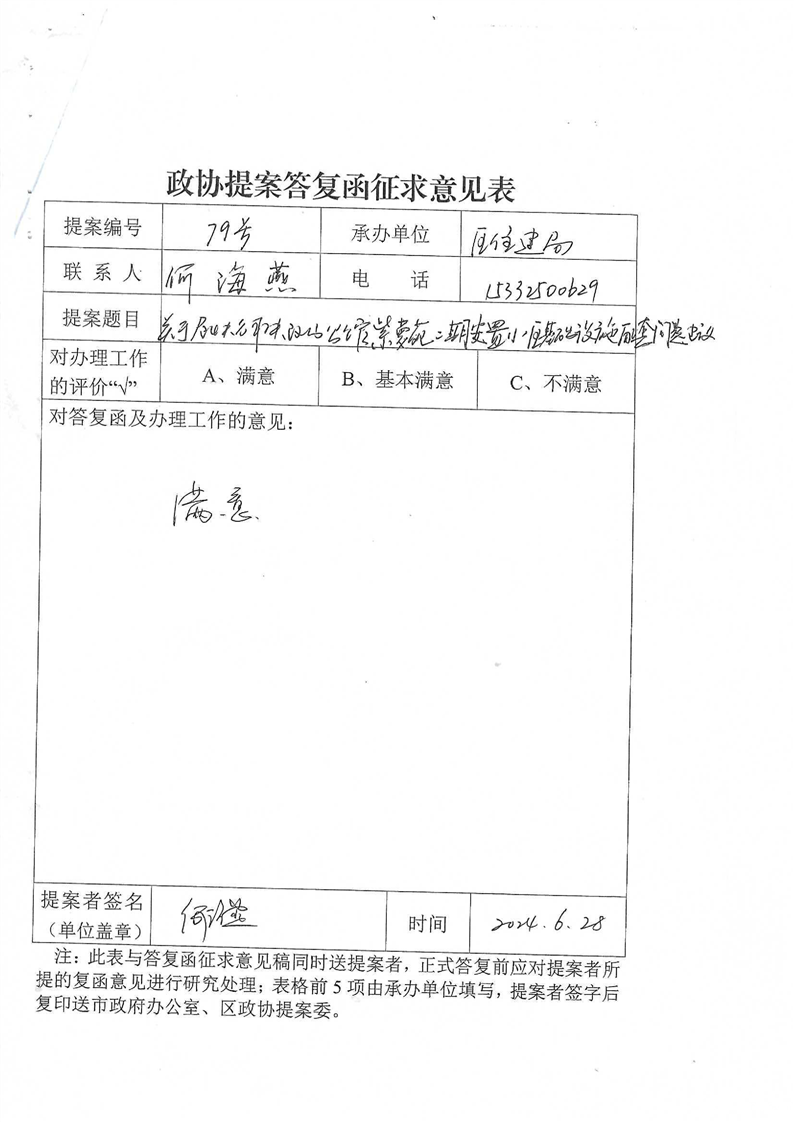 政协提案答复函征求意见表
提案编号 79号 承办单位 区住建局
联系人 何海燕 电话 15332500629
提案题目 关于 二期安置小区基础设施 问题 建议
对办理工作的评价“√” A、满意 B、基本满意 C、不满意
对答复函及办理工作的意见：
满意.
提案者签名（单位盖章） 何海燕 时间 2024.6.28
注：此表与答复函征求意见稿同时送提案者，正式答复前应对提案者所
提的复函意见进行研究处理；表格前 5 项由承办单位填写，提案者签字后
复印送市政府办公室、区政协提案委。